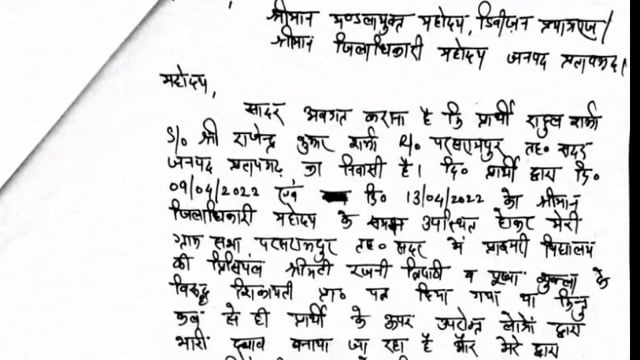 श्रीमान मण्डलायुक्त महोदय, डिवीजन प्रयागराज।
श्रीमान जिलाधिकारी महोदय जनपद प्रतापगढ़।
महोदय,
सादर अवगत कराना है कि प्रार्थी राहुल शर्मा
S/o श्री राजेन्द्र कुमार शर्मा R/o परसरामपुर तह० सदर
जनपद प्रतापगढ़ का निवासी है। कि० प्रार्थी द्वारा दि०
09/04/2022 एवं दि० 13/04/2022 को श्रीमान
जिलाधिकारी महोदय के समक्ष उपस्थित होकर मेरी
ग्राम सभा परसरामपुर तह० सदर में प्राइमरी विद्यालय
की प्रिंसिपल श्रीमती रजनी त्रिपाठी व पुष्पा शुक्ला के
विरुद्ध शिकायती प्रा० पत्र दिया गया था किन्तु
कल से ही प्रार्थी के ऊपर उपरोक्त लोगों द्वारा
भारी दबाव बनाया जा रहा है और मेरे द्वारा